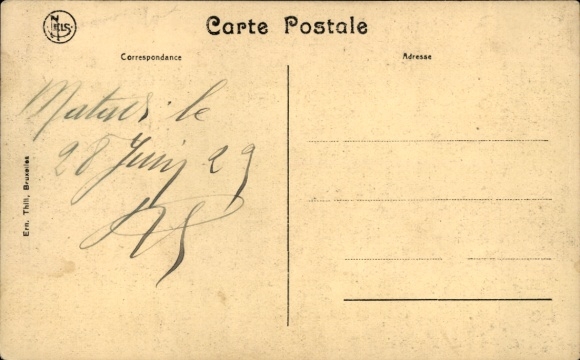 NELS
Carte Postale
Correspondance
Adresse
le
28 Juin 29
Ern. Thill, Bruxelles